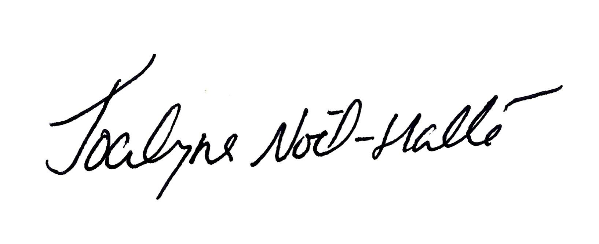 Jocelyne Noël-Hallé